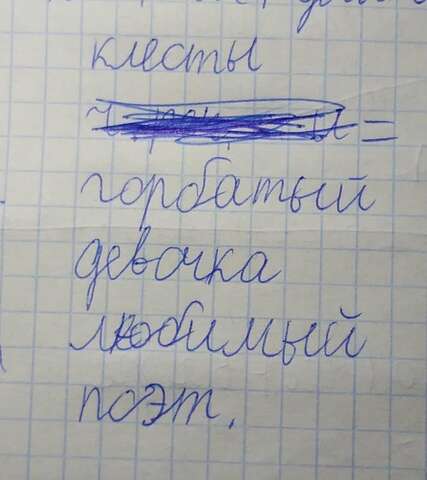 клесты
=
горбатый
девочка
любимый
поэт.